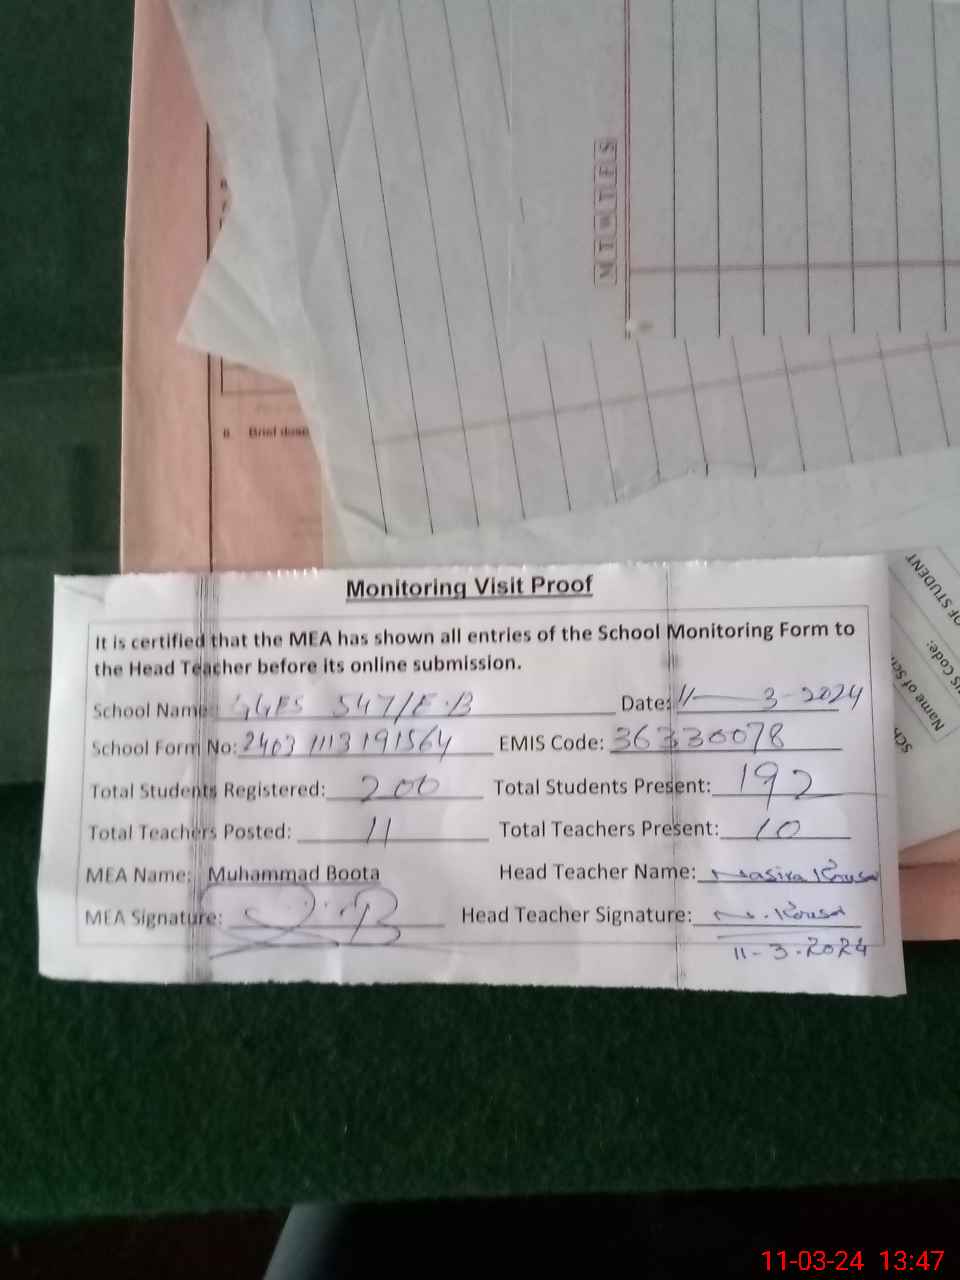 M T W T F S
8. Brief desc
OF STUDENT
US Code:
Name of Sch
Sch
Monitoring Visit Proof
It is certified that the MEA has shown all entries of the School Monitoring Form to
the Head Teacher before its online submission.
School Name: GGES 547/E.B Date: 11-3-2024
School Form No: 2403 1113 191564 EMIS Code: 36330078
Total Students Registered: 200 Total Students Present: 192
Total Teachers Posted: 11 Total Teachers Present: 10
MEA Name: Muhammad Boota Head Teacher Name: Nasira Kousar
MEA Signature: Head Teacher Signature: N. Kousar
11-3-2024
11-03-24 13:47